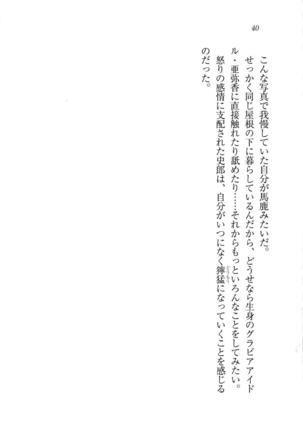 40
こんな写真で我慢していた自分が馬鹿みたいだ。
せっかく同じ屋根の下に暮らしているんだから、どうせなら生身のグラビアアイド
ル・亜弥香に直接触れたり舐めたり……それからもっといろんなことをしてみたい。
怒りの感情に支配された史郎は、自分がいつになく獰猛になっていくことを感じる
のだった。